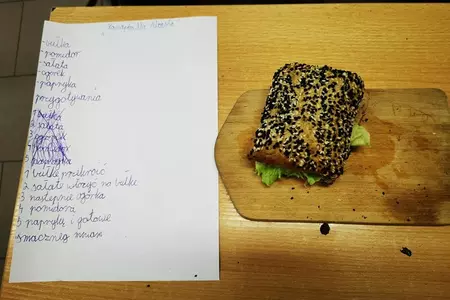 - bułka
- pomidor
- sałata
- ogórek
- papryka
przygotywania
1 bułka
2 sałata
3 ogórek
4 pomidor
5 papryka
1 bułkę przekroić
2 sałatę włożyć na bułkę
3 następnie ogórka
4 pomidora
5 paprykę i gotowe
smacznego